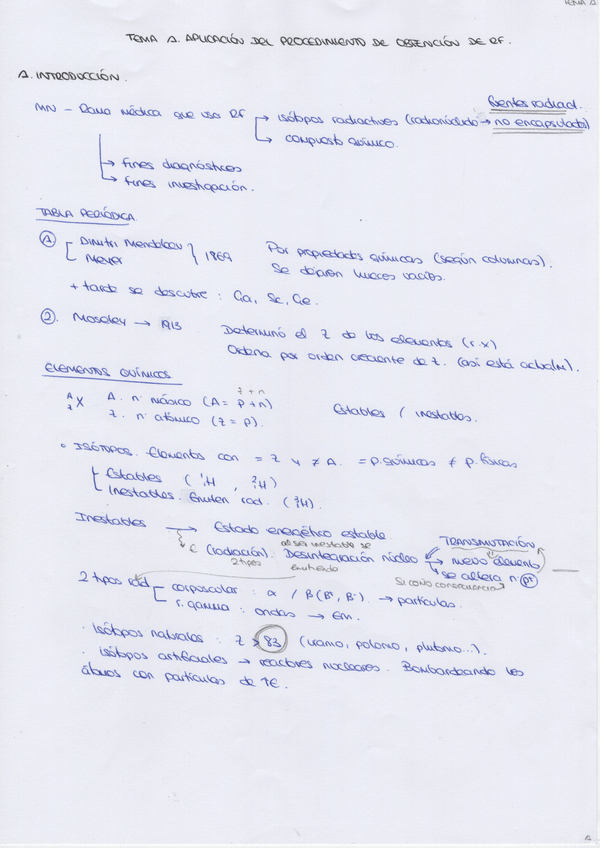 TEMA 1
TEMA 1. APLICACIÓN DEL PROCEDIMIENTO DE OBTENCIÓN DE RF.
1. INTRODUCCIÓN.
fuentes radiad.
MN - Rama médica que usa RF → isótopos radiactivos (radionúclido → no encapsulados)
→ compuesto químico.
→ fines diagnósticos
→ fines investigación.
TABLA PERIÓDICA
① Dimitri Mendeleev
Meyer } 1869 Por propiedades químicas (según columnas).
Se dejaron huecos vacíos.
+ tarde se descubre : Ga, Sc, Ge.
②. Moseley → 1913 Determinó el Z de los elementos (r.x)
Ordena por orden creciente de Z. (así está actualm).
ELEMENTOS QUÍMICOS
z + n
A Z X A. nº másico (A = p + n)
Z. nº atómico (Z = p). Estables / inestables.
• ISÓTOPOS. Elementos con = Z y ≠ A. = p. químicas ≠ p. físicas
Estables (¹₁H , ²₁H)
Inestables. Emiten rad. (³₁H).
Inestables → Estado energético estable.
al ser inestable se TRANSMUTACIÓN
→ E (radiación). Desintegración núcleo → nuevo elemento
2 tipos emitiendo → se altera n p+
Si como consecuencia
2 tipos rad corpuscular : α / β (β+, β-). → partículas.
r. gamma : ondas → Em.
· Isótopos naturales : Z > 83 (uranio, polonio, plutonio...).
· isótopos artificiales → reactores nucleares. Bombardeando los
átomos con partículas de ↑E.
1